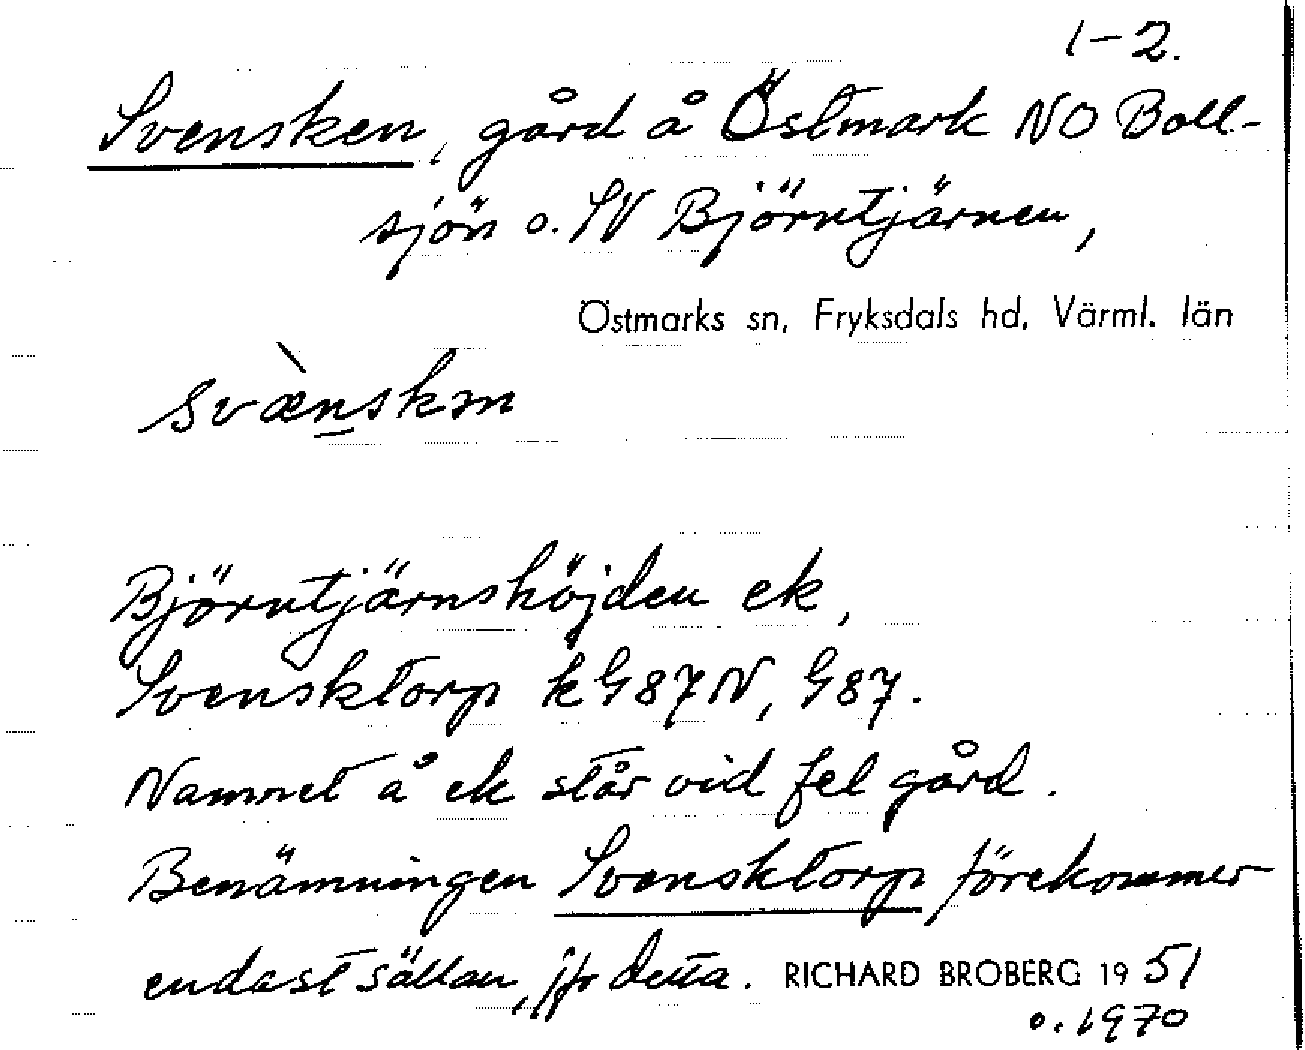 1–2.
Svensken, gård å Östmark NO Boll-
sjön o. SV Björntjärnen,
Östmarks sn, Fryksdals hd, Värml. län
svæ̀nskɘn
Björntjärnshöjden ek,
Svensktorp k G87N, G87.
Namnet å ek står vid fel gård.
Benämningen Svensktorp förekommer
endast sällan, jfr detta. RICHARD BROBERG 1951
o. 1970